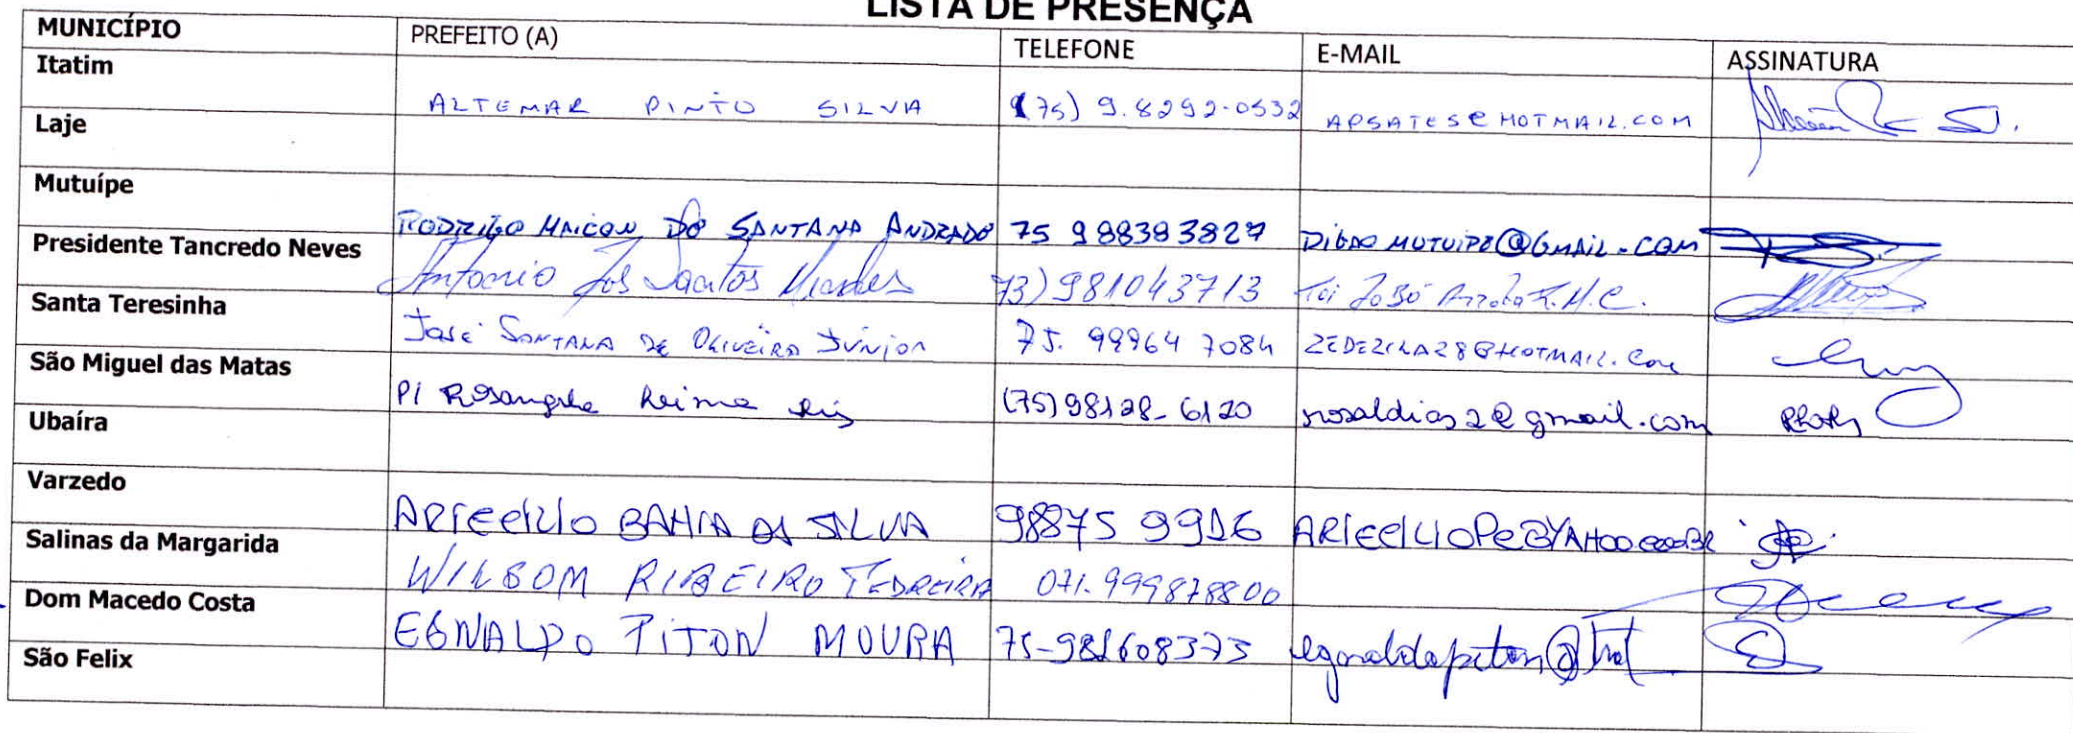 LISTA DE PRESENÇA
MUNICÍPIO PREFEITO (A) TELEFONE E-MAIL ASSINATURA
Itatim ALTEMAR PINTO SILVA (75) 9.8292-0532 APSATES@HOTMAIL.COM
Laje
Mutuípe RODRIGO MAICON DO SANTANA ANDRADO 75 988383827 DIGAOMUTUIPE@GMAIL.COM
Presidente Tancredo Neves Antonio dos Santos Mendes 73) 981043713
Santa Teresinha José SANTANA DE OLIVEIRA JÚNIOR 75. 99964 7084 ZEDEZILA28@HOTMAIL.COM
São Miguel das Matas P/ Rosangela (75) 98128-6120 rosaldias2@gmail.com
Ubaíra
Varzedo ARIECILIO BAHIA DA SILVA 98875 9916
Salinas da Margarida WILSOM RIBEIRO PEDREIRA 071.999878800
Dom Macedo Costa EGNALDO PITON MOURA 75-981608373
São Felix